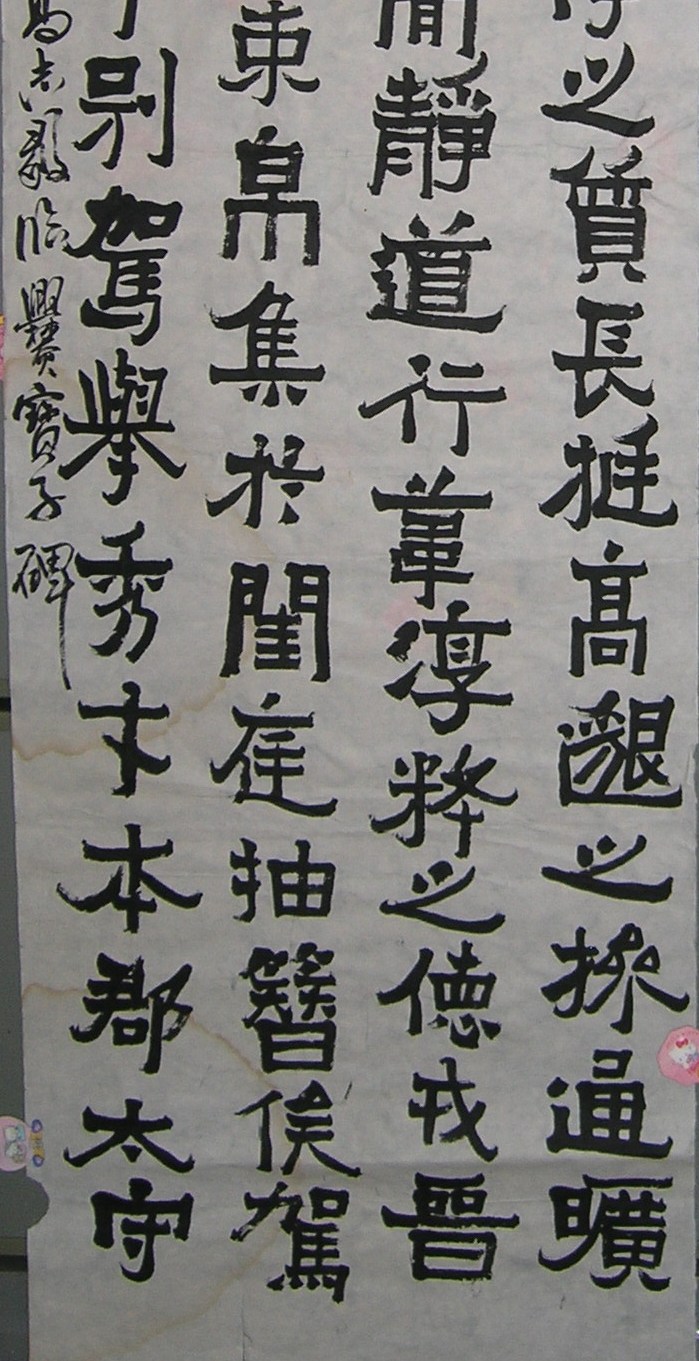 之質長挺高邈之操通曠
靜道行葦淳粹之德戎晉
束帛集於閨庭抽簪俟駕
別駕舉秀才本郡太守
臨爨寶子碑